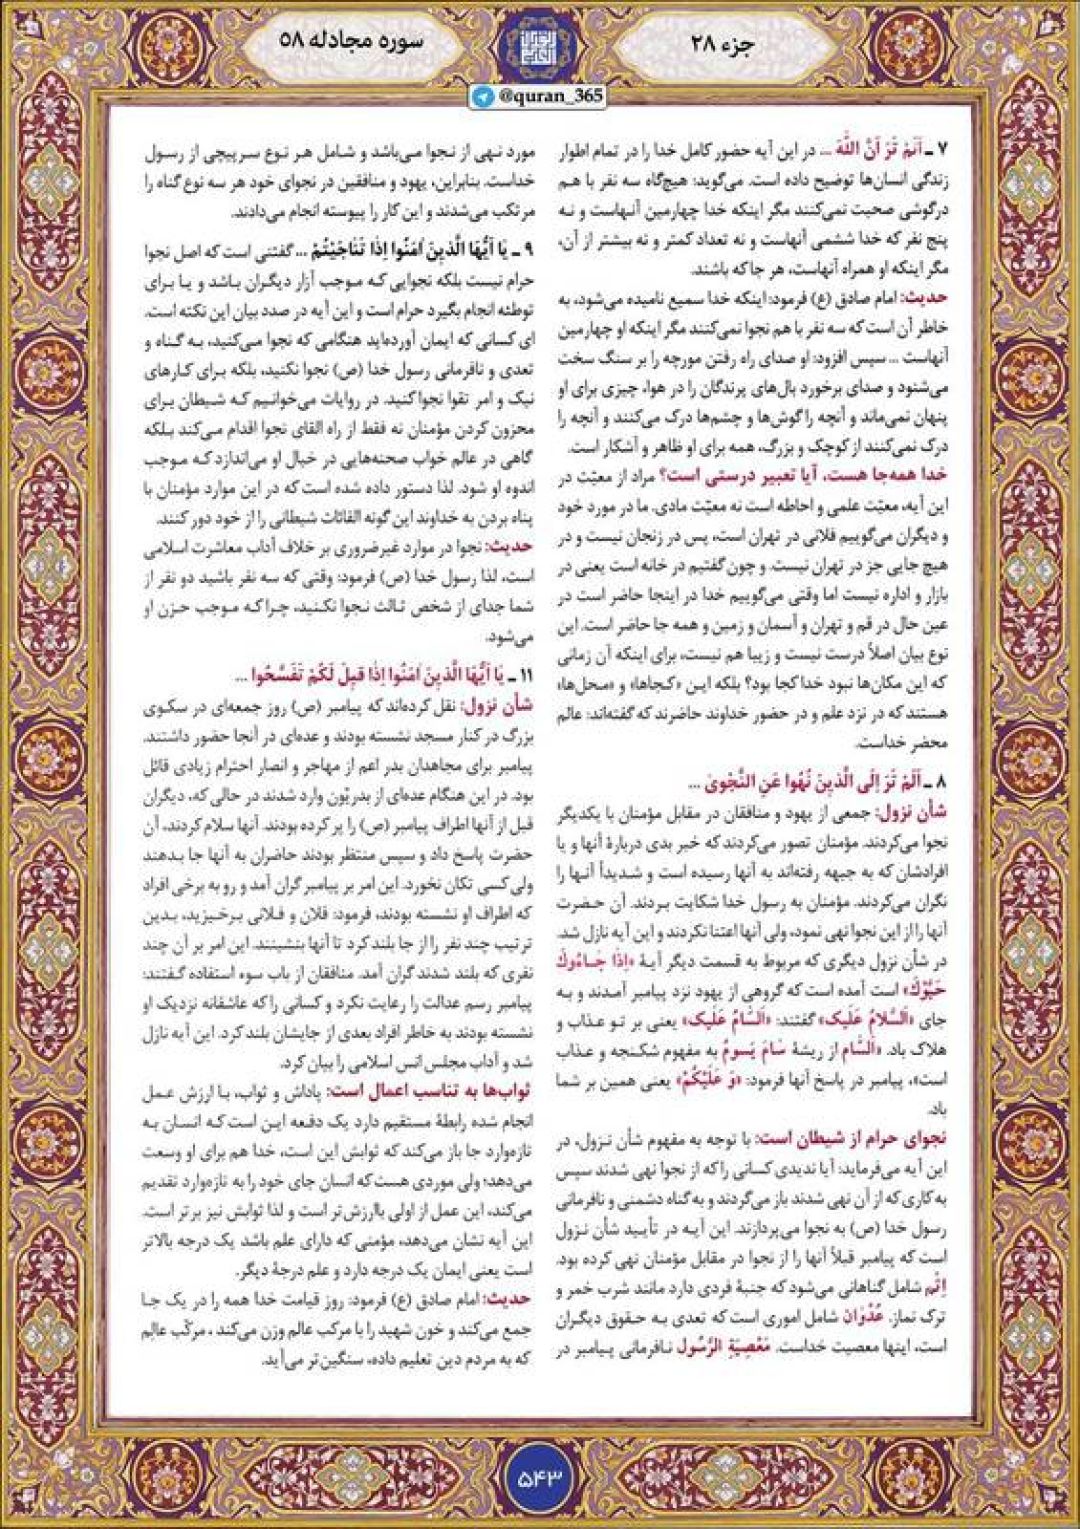 جزء ۲۸
سوره مجادله ۵۸
@quran_365
۷ ـ اَلَمْ تَرَ اَنَّ اللّٰهَ ... در این آیه حضور کامل خدا را در تمام اطوار
زندگی انسان‌ها توضیح داده است. می‌گوید: هیچ‌گاه سه نفر با هم
درگوشی صحبت نمی‌کنند مگر اینکه خدا چهارمین آنهاست و نه
پنج نفر که خدا ششمی آنهاست و نه تعداد کمتر و نه بیشتر از آن،
مگر اینکه او همراه آنهاست، هر جا که باشند.
حدیث: امام صادق (ع) فرمود: اینکه خدا سمیع نامیده می‌شود، به
خاطر آن است که سه نفر با هم نجوا نمی‌کنند مگر اینکه او چهارمین
آنهاست ... سپس افزود: او صدای راه رفتن مورچه را بر سنگ سخت
می‌شنود و صدای برخورد بال‌های پرندگان را در هوا، چیزی برای او
پنهان نمی‌ماند و آنچه را گوش‌ها و چشم‌ها درک می‌کنند و آنچه را
درک نمی‌کنند از کوچک و بزرگ، همه برای او ظاهر و آشکار است.
خدا همه‌جا هست، آیا تعبیر درستی است؟ مراد از معیّت در
این آیه، معیّت علمی و احاطه است نه معیّت مادی. ما در مورد خود
و دیگران می‌گوییم فلانی در تهران است، پس در زنجان نیست و در
هیچ جایی جز در تهران نیست. و چون گفتیم در خانه است یعنی در
بازار و اداره نیست اما وقتی می‌گوییم خدا در اینجا حاضر است در
عین حال در قم و تهران و آسمان و زمین و همه جا حاضر است. این
نوع بیان اصلاً درست نیست و زیبا هم نیست، برای اینکه آن زمانی
که این مکان‌ها نبود خدا کجا بود؟ بلکه این «کجاها» و «محل‌ها»
هستند که در نزد علم و در حضور خداوند حاضرند که گفته‌اند: عالم
محضر خداست.
۸ ـ اَلَمْ تَرَ اِلَی الَّذینَ نُهُوا عَنِ النَّجْویٰ ...
شأن نزول: جمعی از یهود و منافقان در مقابل مؤمنان با یکدیگر
نجوا می‌کردند. مؤمنان تصور می‌کردند که خبر بدی دربارۀ آنها و یا
افرادشان که به جبهه رفته‌اند به آنها رسیده است و شدیداً آنها را
نگران می‌کردند. مؤمنان به رسول خدا شکایت بردند. آن حضرت
آنها را از این نجوا نهی نمود، ولی آنها اعتنا نکردند و این آیه نازل شد.
در شأن نزول دیگری که مربوط به قسمت دیگر آیۀ «اِذٰا جٰاءُوكَ
حَیَّوْكَ» است آمده است که گروهی از یهود نزد پیامبر آمدند و به
جای «اَلسَّلامُ عَلَیک» گفتند: «اَلسّامُ عَلَیک» یعنی بر تو عذاب و
هلاک باد. «اَلسّام از ریشۀ سٰامَ یَسومُ به مفهوم شکنجه و عذاب
است»، پیامبر در پاسخ آنها فرمود: «وَ عَلَیْکُمْ» یعنی همین بر شما
باد.
نجوای حرام از شیطان است: با توجه به مفهوم شأن نزول، در
این آیه می‌فرماید: آیا ندیدی کسانی را که از نجوا نهی شدند سپس
به کاری که از آن نهی شدند باز می‌گردند و به گناه دشمنی و نافرمانی
رسول خدا (ص) به نجوا می‌پردازند. این آیه در تأیید شأن نزول
است که پیامبر قبلاً آنها را از نجوا در مقابل مؤمنان نهی کرده بود.
اِثْم شامل گناهانی می‌شود که جنبۀ فردی دارد مانند شرب خمر و
ترک نماز. عُدْوٰان شامل اموری است که تعدی به حقوق دیگران
است، اینها معصیت خداست. مَعْصِیَةِ الرَّسُول نافرمانی پیامبر در
مورد نهی از نجوا می‌باشد و شامل هر نوع سرپیچی از رسول
خداست. بنابراین، یهود و منافقین در نجوای خود هر سه نوع گناه را
مرتکب می‌شدند و این کار را پیوسته انجام می‌دادند.
۹ ـ یٰا اَیُّهَا الَّذینَ اٰمَنُوا اِذٰا تَنٰاجَیْتُمْ ... گفتنی است که اصل نجوا
حرام نیست بلکه نجوایی که موجب آزار دیگران باشد و یا برای
توطئه انجام بگیرد حرام است و این آیه در صدد بیان این نکته است.
ای کسانی که ایمان آورده‌اید هنگامی که نجوا می‌کنید، به گناه و
تعدی و نافرمانی رسول خدا (ص) نجوا نکنید، بلکه برای کارهای
نیک و امر تقوا نجوا کنید. در روایات می‌خوانیم که شیطان برای
محزون کردن مؤمنان نه فقط از راه القای نجوا اقدام می‌کند بلکه
گاهی در عالم خواب صحنه‌هایی در خیال او می‌اندازد که موجب
اندوه او شود. لذا دستور داده شده است که در این موارد مؤمنان با
پناه بردن به خداوند این گونه القائات شیطانی را از خود دور کنند.
حدیث: نجوا در موارد غیرضروری بر خلاف آداب معاشرت اسلامی
است، لذا رسول خدا (ص) فرمود: وقتی که سه نفر باشید دو نفر از
شما جدای از شخص ثالث نجوا نکنید، چرا که موجب حزن او
می‌شود.
۱۱ ـ یٰا اَیُّهَا الَّذینَ اٰمَنُوا اِذٰا قیلَ لَکُمْ تَفَسَّحُوا ...
شأن نزول: نقل کرده‌اند که پیامبر (ص) روز جمعه‌ای در سکوی
بزرگ در کنار مسجد نشسته بودند و عده‌ای در آنجا حضور داشتند.
پیامبر برای مجاهدان بدر اعم از مهاجر و انصار احترام زیادی قائل
بود. در این هنگام عده‌ای از بدریّون وارد شدند در حالی که، دیگران
قبل از آنها اطراف پیامبر (ص) را پر کرده بودند. آنها سلام کردند، آن
حضرت پاسخ داد و سپس منتظر بودند حاضران به آنها جا بدهند
ولی کسی تکان نخورد. این امر بر پیامبر گران آمد و رو به برخی افراد
که اطراف او نشسته بودند، فرمود: فلان و فلانی برخیزید، بدین
ترتیب چند نفر را از جا بلند کرد تا آنها بنشینند. این امر بر آن چند
نفری که بلند شدند گران آمد. منافقان از باب سوء استفاده گفتند:
پیامبر رسم عدالت را رعایت نکرد و کسانی را که عاشقانه نزدیک او
نشسته بودند به خاطر افراد بعدی از جایشان بلند کرد. این آیه نازل
شد و آداب مجلس انس اسلامی را بیان کرد.
ثواب‌ها به تناسب اعمال است: پاداش و ثواب، با ارزش عمل
انجام شده رابطۀ مستقیم دارد یک دفعه این است که انسان به
تازه‌وارد جا باز می‌کند که ثوابش این است، خدا هم برای او وسعت
می‌دهد؛ ولی موردی هست که انسان جای خود را به تازه‌وارد تقدیم
می‌کند، این عمل از اولی باارزش‌تر است و لذا ثوابش نیز برتر است.
این آیه نشان می‌دهد، مؤمنی که دارای علم باشد یک درجه بالاتر
است یعنی ایمان یک درجه دارد و علم درجۀ دیگر.
حدیث: امام صادق (ع) فرمود: روز قیامت خدا همه را در یک جا
جمع می‌کند و خون شهید را با مرکب عالم وزن می‌کند، مرکّب عالِم
که به مردم دین تعلیم داده، سنگین‌تر می‌آید.
۵۴۳